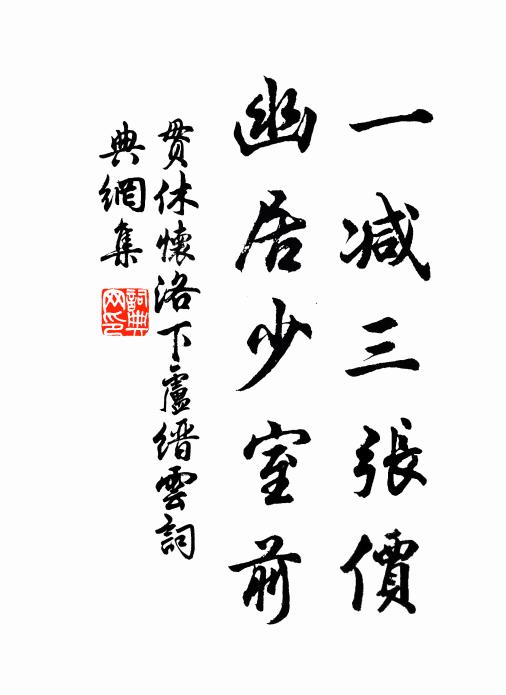 一减三張價
幽居少室前
貫休懷洛下盧縉雲詞
典網集
詞典網印